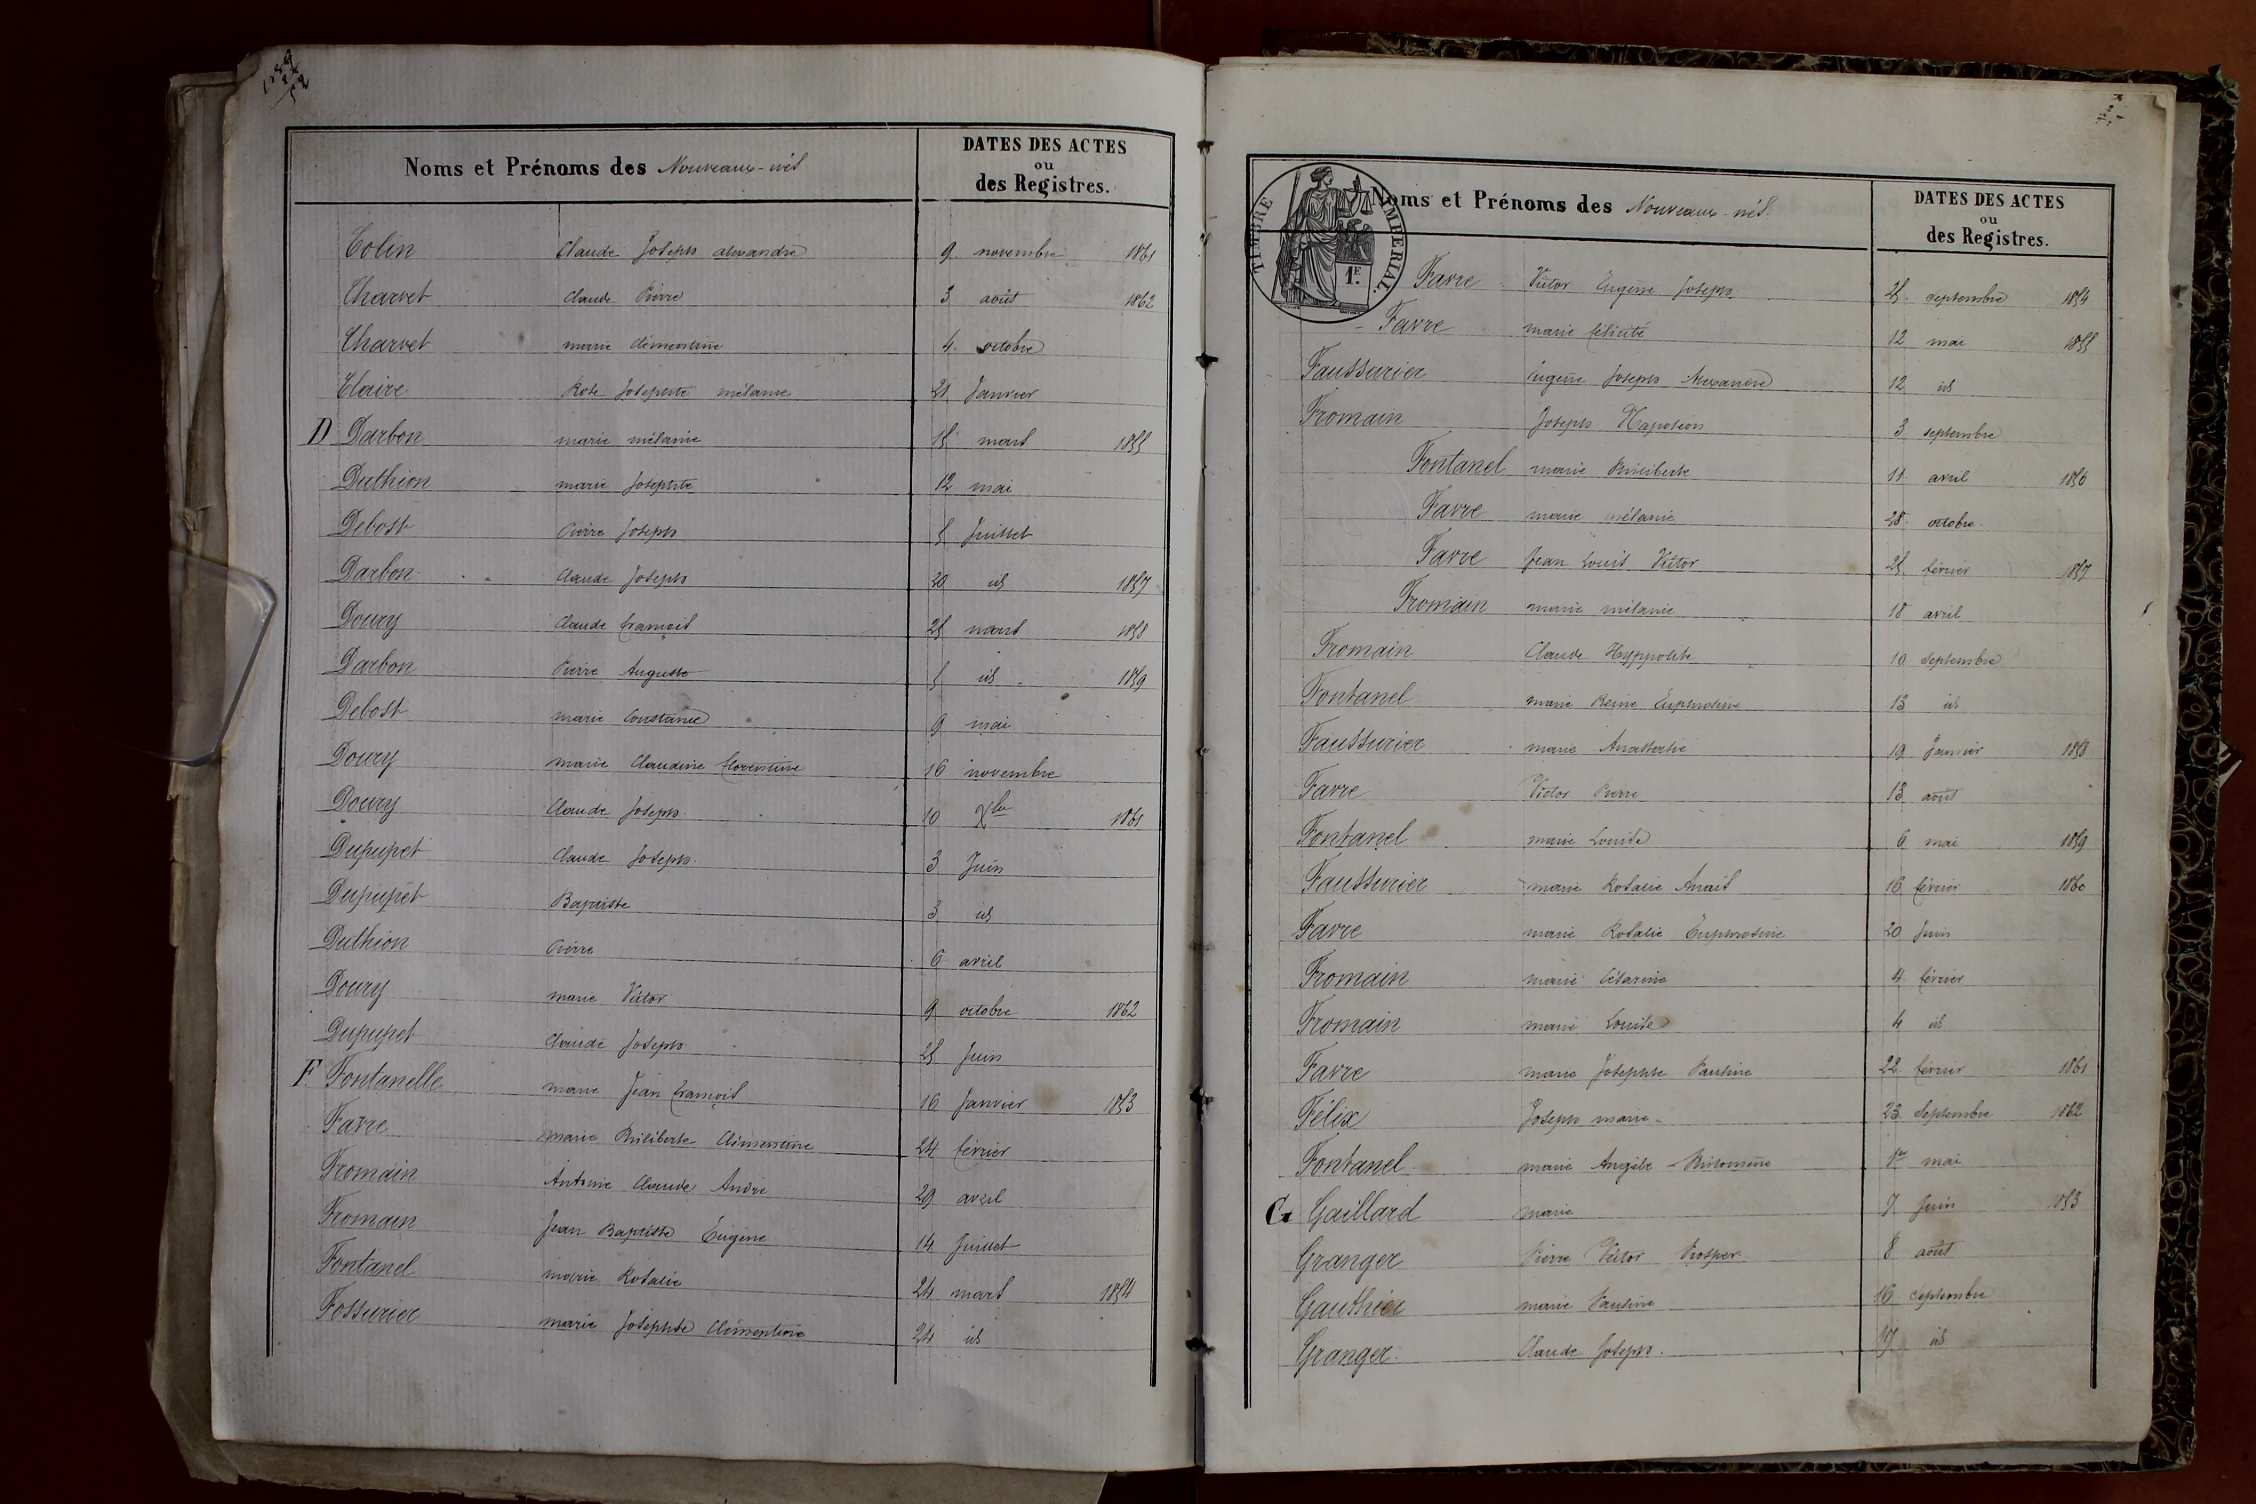 Noms et Prénoms des Nouveaux-nés
DATES DES ACTES
ou
des Registres.
Colin Claude Joseph alexandre 9 novembre 1861
Charvet Claude Pierre 3 août 1862
Charvet marie Clémentine 4 octobre
Claire Rose Josephte mélanie 21 Janvier
D Darbon marie mélanie 15 mars 1855
Duthion marie Josephte 12 mai
Debost Pierre Joseph 5 Juillet
Darbon Claude Joseph 20 id 1857
Doury Claude François 25 mars 1858
Darbon Pierre Auguste 5 id 1859
Debost marie Constance 9 mai
Doury marie Claudine Florentine 16 novembre
Doury Claude Joseph 10 Xbre 1861
Dupupet Claude Joseph 3 Juin
Dupupet Baptiste 3 id
Duthion Pierre 6 avril
Doury marie Victor 9 octobre 1862
Dupupet Claude Joseph 25 Juin
F Fontanelle marie Jean François 16 Janvier 1853
Favre marie Philiberte Clémentine 24 février
Fromain Antoine Claude André 29 avril
Fromain Jean Baptiste Eugène 14 Juillet
Fontanel marie Rosalie 24 mars 1854
Fossurier marie Josephte Clémentine 24 id
TIMBRE IMPERIAL.
1.E
Noms et Prénoms des Nouveaux-nés.
DATES DES ACTES
ou
des Registres.
Favre Victor Eugène Joseph 25 septembre 1854
Favre marie félicité 12 mai 1855
Faussurier Eugène Joseph Alexandre 12 id
Fromain Joseph Napoléon 3 septembre
Fontanel marie Philiberte 11 avril 1856
Favre marie mélanie 28 octobre
Favre Jean Louis Victor 25 février 1857
Fromain marie mélanie 18 avril
Fromain Claude Hyppolite 10 septembre
Fontanel marie Reine Euphrosine 13 id
Faussurier marie Anastasie 19 Janvier 1858
Favre Victor Pierre 13 août
Fontanel marie Louise 6 mai 1859
Faussurier marie Rosalie Anaïs 16 février 1860
Favre marie Rosalie Euphrosine 20 Juin
Fromain marie Césarine 4 février
Fromain marie Louise 4 id
Favre marie Josephte Pauline 22 février 1861
Félix Joseph marie 23 Septembre 1862
Fontanel marie Angèle Philomène 1er mai
G Gaillard marie 7 Juin 1853
Granger Pierre Victor Prosper 8 août
Gauthier marie Pauline 16 Septembre
Granger Claude Joseph 17 id